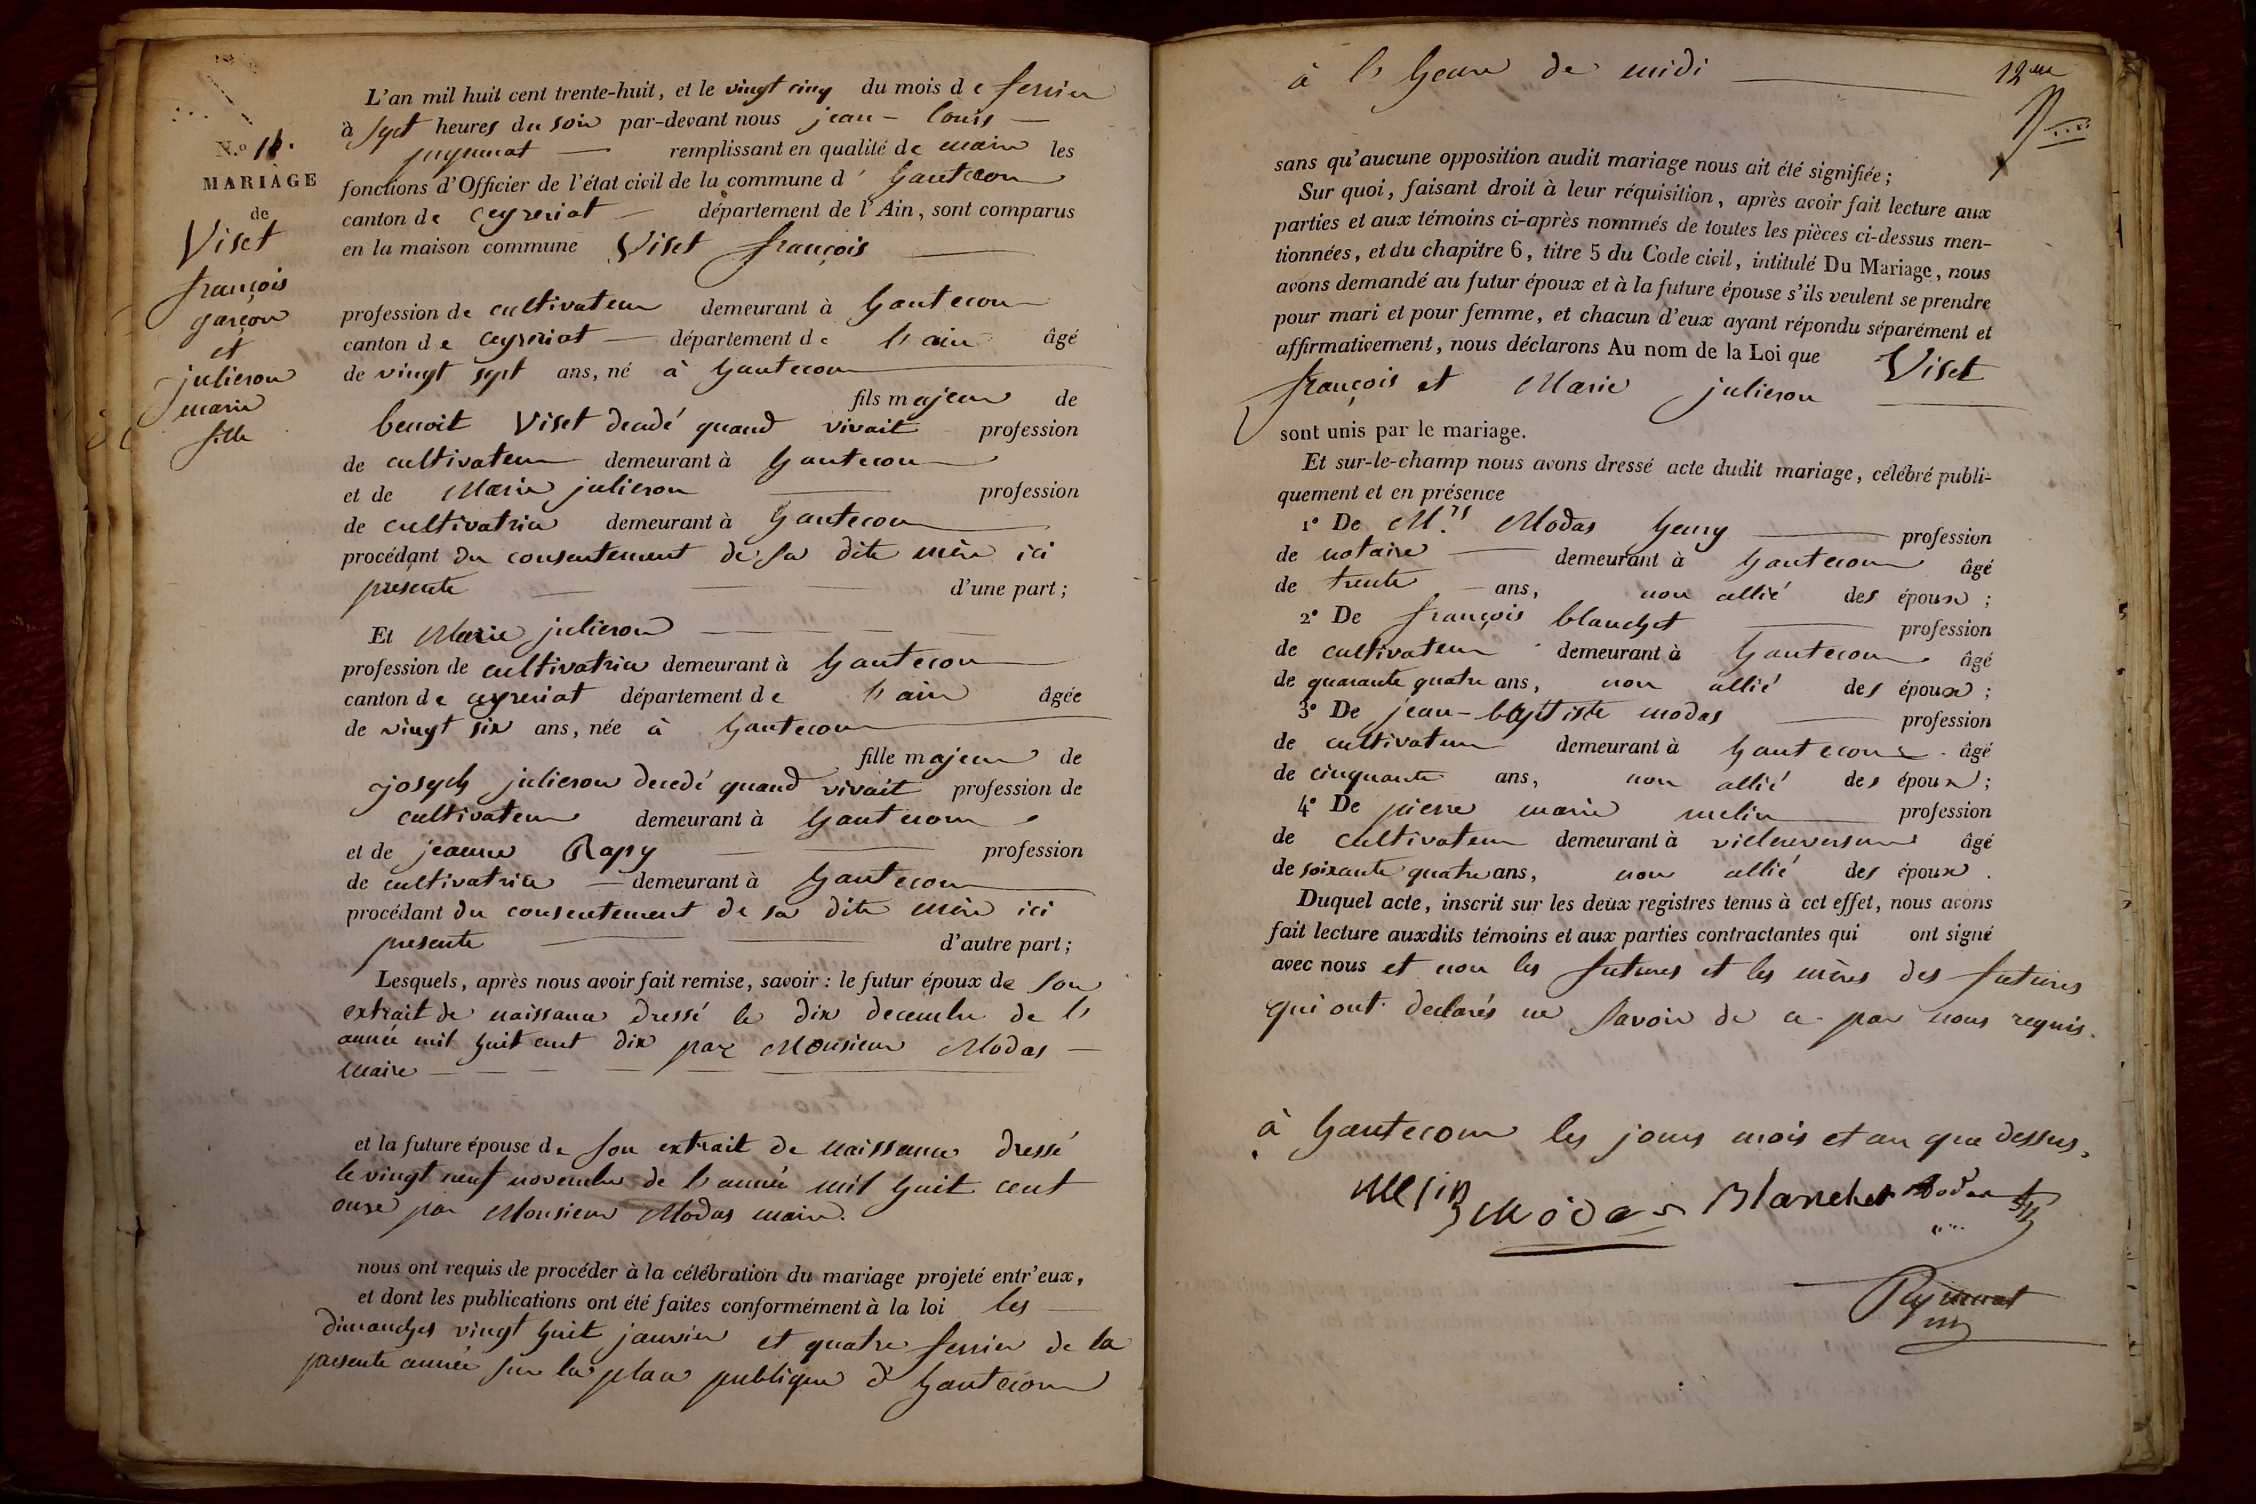 L'an mil huit cent trente-huit, et le vingt cinq du mois de fevrier
à sept heures du soir par-devant nous jean - louis
puymerat remplissant en qualité de maire les
fonctions d'Officier de l'état civil de la commune d' hautecour
canton de ceyzeriat département de l'Ain, sont comparus
en la maison commune Viset françois
profession de cultivateur demeurant à hautecour
canton de ceyzeriat département de l'ain âgé
de vingt sept ans, né à hautecour
fils majeur de
benoit Viset decedé quand vivait profession
de cultivateur demeurant à hautecour
et de Marie julieron profession
de cultivatrice demeurant à hautecour
procédant du consentement de sa dite mère ici
presente d'une part;
Et Marie julieron
profession de cultivatrice demeurant à hautecour
canton de ceyzeriat département de l'ain âgée
de vingt six ans, née à hautecour
fille majeur de
joseph julieron decedé quand vivait profession de
cultivateur demeurant à hautecour
et de jeanne Rapy profession
de cultivatrice demeurant à hautecour
procédant du consentement de sa dite mère ici
presente d'autre part;
Lesquels, après nous avoir fait remise, savoir: le futur époux de son
extrait de naissance dressé le dix decembre de l'
année mil huit cent dix par Monsieur Modas
maire
et la future épouse de son extrait de naissance dressé
le vingt neuf novembre de l'année mil huit cent
onze par Monsieur Modas maire.
nous ont requis de procéder à la célébration du mariage projeté entr'eux,
et dont les publications ont été faites conformément à la loi les
dimanches vingt huit janvier et quatre fevrier de la
presente année sur la place publique d'hautecour
N.º
MARIAGE
de
Viset
françois
garçon
et
julieron
marie
fille
12me
à l'heure de midi
sans qu'aucune opposition audit mariage nous ait été signifiée;
Sur quoi, faisant droit à leur réquisition, après avoir fait lecture aux
parties et aux témoins ci-après nommés de toutes les pièces ci-dessus men-
tionnées, et du chapitre 6, titre 5 du Code civil, intitulé Du Mariage, nous
avons demandé au futur époux et à la future épouse s'ils veulent se prendre
pour mari et pour femme, et chacun d'eux ayant répondu séparément et
affirmativement, nous déclarons Au nom de la Loi que Viset
françois et Marie julieron
sont unis par le mariage.
Et sur-le-champ nous avons dressé acte dudit mariage, célébré publi-
quement et en présence
1º De M.rs Modas henry profession
de notaire demeurant à hautecour âgé
de trente ans, non allié des époux;
2º De françois blanchet profession
de cultivateur demeurant à hautecour âgé
de quarante quatre ans, non allié des époux;
3º De jean-baptiste modas profession
de cultivateur demeurant à hautecour âgé
de cinquante ans, non allié des époux;
4º De pierre marie melin profession
de cultivateur demeurant à villereversure âgé
de soixante quatre ans, non allié des époux.
Duquel acte, inscrit sur les deux registres tenus à cet effet, nous avons
fait lecture auxdits témoins et aux parties contractantes qui ont signé
avec nous et non les futures et les mères des futures
qui ont declarés ne savoir de ce par nous requis.
à hautecour les jours mois et an que dessus.
Melin Modas Blanchet Modas
Puymerat